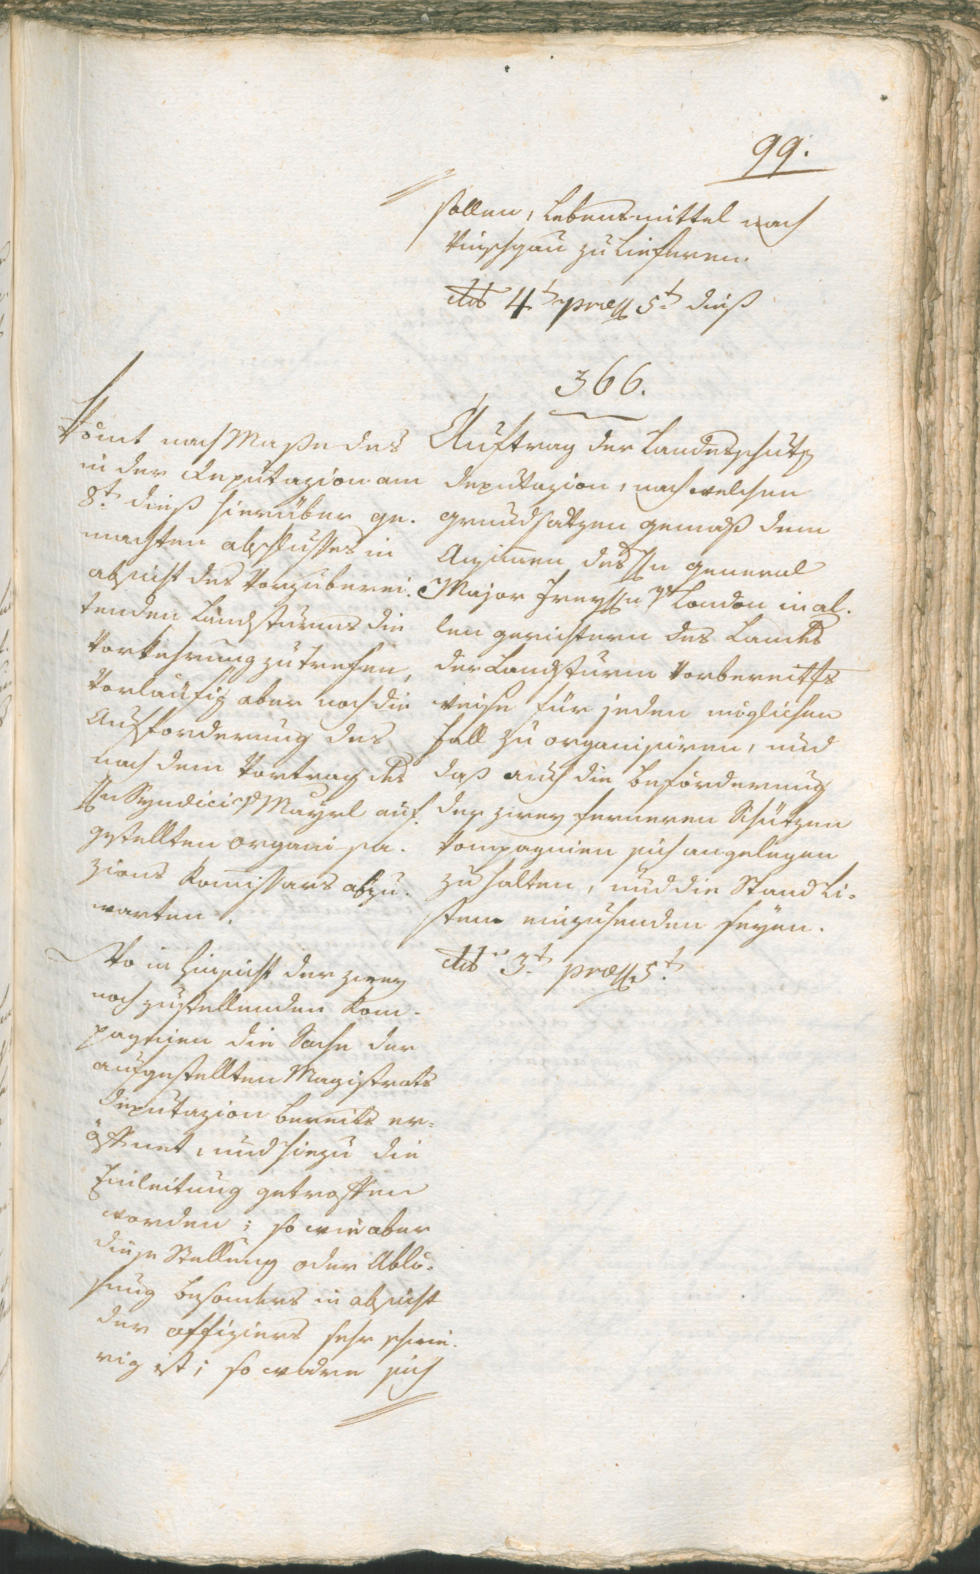 99.
sollen, Lebensmittel nach
Vinschgau zu liefferen.
ddo 4t præss 5t dieß
366.
Auftrag der Landesschutz
deputazion, nach welchen
grundsätzen gemäß dem
Ansinnen des Hn General
Major Freyhn v Loudon in al-
len gerichtern des Landes
der Landsturm Vorbereitts
weise für jeden möglichen
fall zu organisiren, und
daß auch die Beförderung
der zwey ferneren Schützen
Compagnien sich angelegen
zu halten, und die Stand Li-
sten einzusenden seyen.
ddo 3t præss 5t
Könit nach Masse des
in der Deputazion am
8t dieß hierüber ge-
machten abschlusses in
absicht des Vorzuberei-
tenden Landsturms die
Vorkehrung zu trefen,
Vorläufig aber noch die
Aufforderung des
nach dem Vortrag des
Hn Syndici v Mayrl auf-
gestellten organisa-
zions Komissars abzu-
warten.
Wo in hinsicht der zwey
noch zustellenden Kom-
pagnien die Sache der
aufgestellten Magistrats
Deputazion bereits er-
öffnet, und hiezu die
Einleitung getroffen
worden; so wie aber
diese Stellung oder Ablö-
sung besonders in absicht
der offiziers sehr schwie-
rig ist; so wäre sich